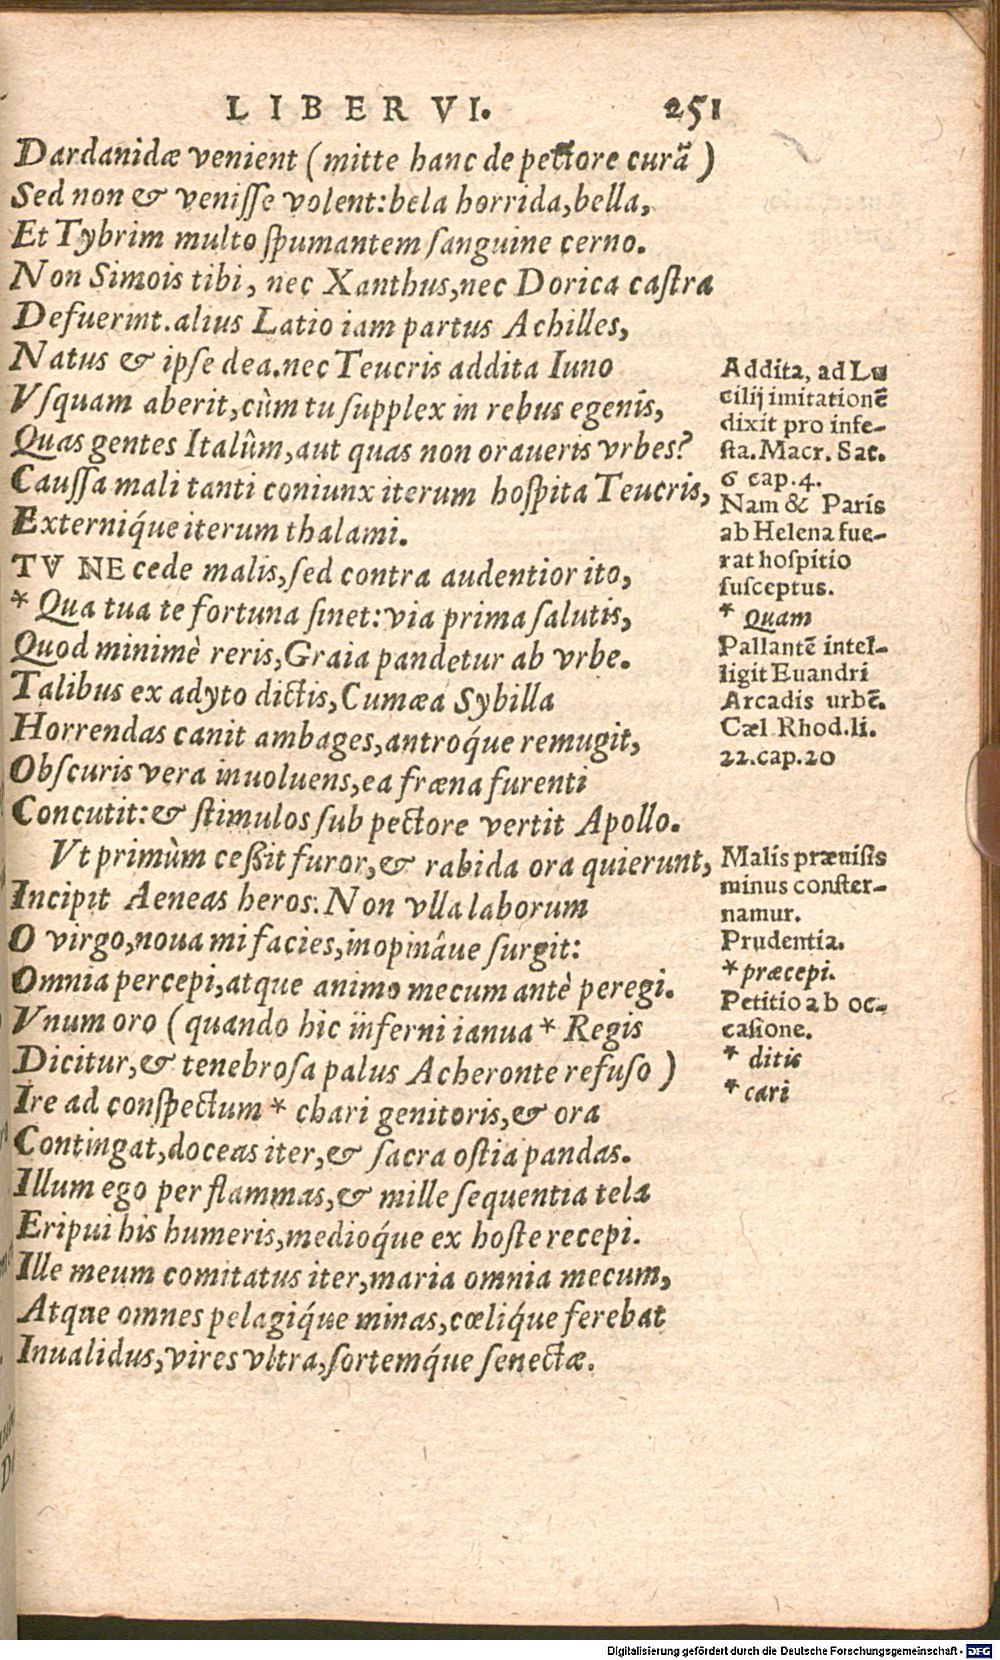 LIBER VI. 251
Dardanidæ venient (mitte hanc de pectore curā)
Sed non & venisse volent: bela horrida, bella,
Et Tybrim multo spumantem sanguine cerno.
Non Simois tibi, nec Xanthus, nec Dorica castra
Defuerint. alius Latio iam partus Achilles,
Natus & ipse dea. nec Teucris addita Iuno
Vsquam aberit, cùm tu supplex in rebus egenis,
Quas gentes Italûm, aut quas non oraueris vrbes?
Caussa mali tanti coniunx iterum hospita Teucris,
Externiq́ue iterum thalami.
TV NE cede malis, sed contra audentior ito,
* Qua tua te fortuna sinet: via prima salutis,
Quod minimè reris, Graia pandetur ab vrbe.
Talibus ex adyto dictis, Cumæa Sybilla
Horrendas canit ambages, antroq́ue remugit,
Obscuris vera inuoluens, ea fræna furenti
Concutit: & stimulos sub pectore vertit Apollo.
Vt primùm ceßit furor, & rabida ora quierunt,
Incipit Aeneas heros: Non vlla laborum
O virgo, noua mi facies, inopinâue surgit:
Omnia percepi, atque animo mecum antè peregi.
Vnum oro (quando hic inferni ianua * Regis
Dicitur, & tenebrosa palus Acheronte refuso)
Ire ad conspectum * chari genitoris, & ora
Contingat, doceas iter, & sacra ostia pandas.
Illum ego per flammas, & mille sequentia tela
Eripui his humeris, medioq́ue ex hoste recepi.
Ille meum comitatus iter, maria omnia mecum,
Atque omnes pelagiq́ue minas, cœliq́ue ferebat
Inualidus, vires vltra, sortemq́ue senectæ.
Addita, ad Lu
cilij imitationē
dixit pro infe-
sta. Macr. Sat.
6 cap. 4.
Nam & Paris
ab Helena fue-
rat hospitio
susceptus.
* Quam
Pallantē intel-
ligit Euandri
Arcadis urbē.
Cæl Rhod. li.
22. cap. 20
Malis præuisis
minus conster-
namur.
Prudentia.
* præcepi.
Petitio ab oc-
casione.
* ditis
* cari
Digitalisierung gefördert durch die Deutsche Forschungsgemeinschaft - DFG